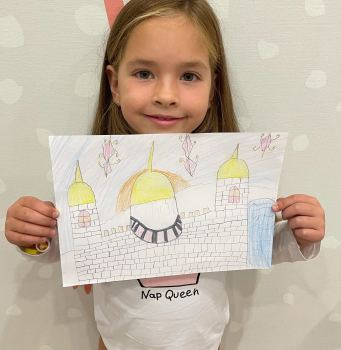 Nap Queen